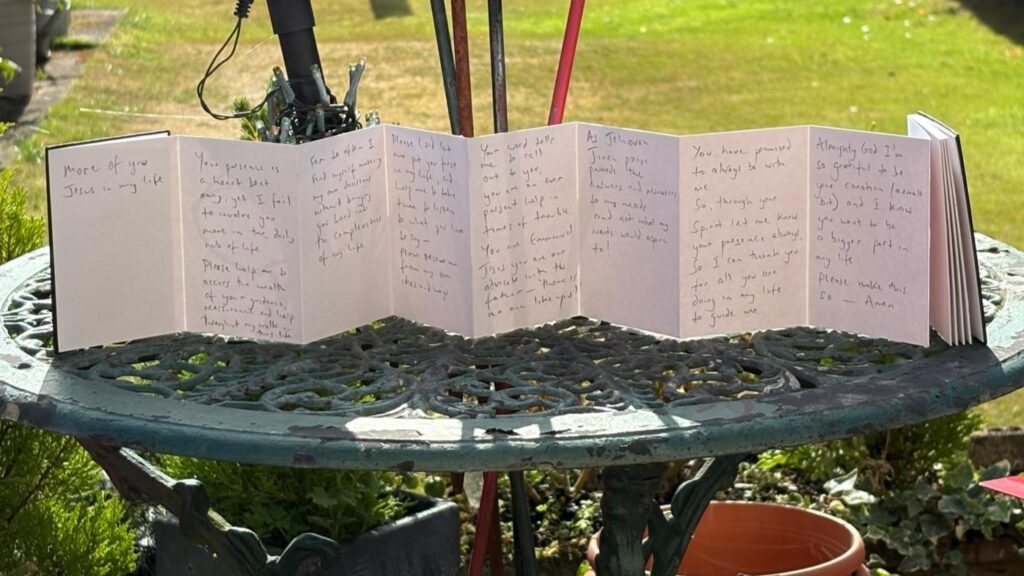 more of you
Jesus in my life
Your presence is
a heart beat
away, yet I fail
to involve you
more in the daily
of life
Please help me to
access the wealth
of your guidance,
and help
throughout my walk
life
Far to often I
find myself making
my own decisions
without bringing
your Lord into
the complexities
of my life
Please God let
me put you first
in my life, and
help me to take
time to listen
to what you
please preserve me
from my own
and ways
Your word tells
me to call
out to you,
you are an ever
present help in
times of trouble.
You are Emmanuel
Jesus you are our
advocate with the
father – there is
no one like you!
As Jehovah
Jireh please
provide the
answers and
to my needs
and not what my
wants would aspire
to!
You have promised
to always be with
me
So, through your
Spirit let me know
your presence always
So I can thank you
for all you are
doing in my life
to guide me
Almighty God I'm
so grateful to be
your creation (a small
bit) and I know
you want to be
a bigger part in
my life
Please make this
so – Amen